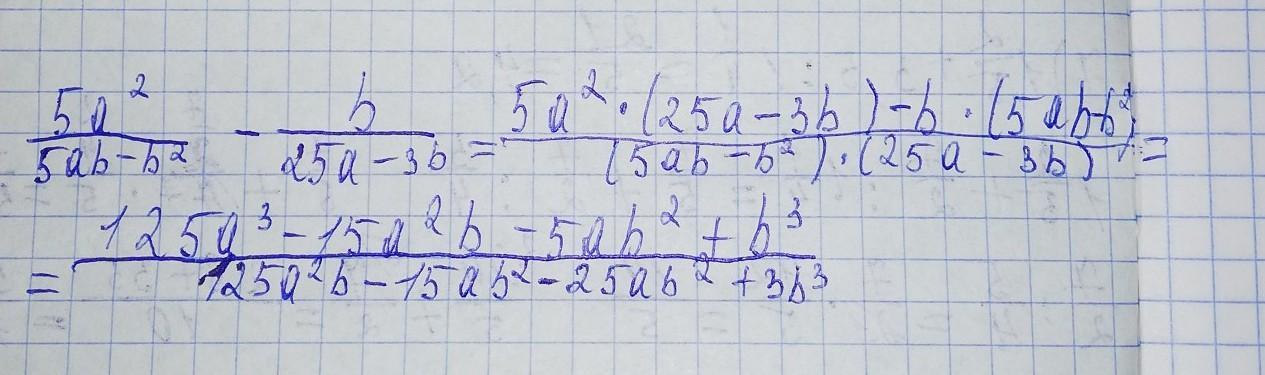 5a²/(5ab-b²) - b/(25a-3b) = (5a²·(25a-3b)-b·(5ab-b²))/((5ab-b²)·(25a-3b)) =
= (125a³-15a²b-5ab²+b³)/(125a²b-15ab²-25ab²+3b³)